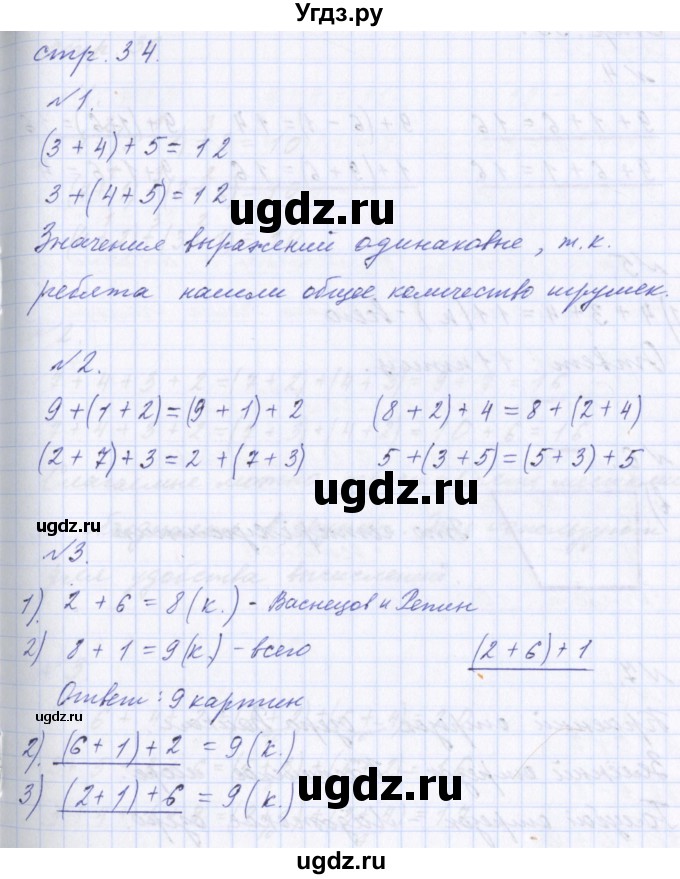 Угдз.ру
стр. 34.
№1.
(3 + 4) + 5 = 12
3 + (4 + 5) = 12
ugdz.ru
Значения выражений одинаковые, т.к.
ребята нашли общее количество игрушек.
ugdz.ru
№2.
9 + (1 + 2) = (9 + 1) + 2 (8 + 2) + 4 = 8 + (2 + 4)
(2 + 7) + 3 = 2 + (7 + 3) 5 + (3 + 5) = (5 + 3) + 5
ugdz.ru
ugdz.ru
№3.
1). 2 + 6 = 8 (к.) - Васнецов и Репин
2) 8 + 1 = 9 (к.) - всего (2 + 6) + 1
ugdz.ru
Ответ: 9 картин
ugdz.ru
2). (6 + 1) + 2 = 9 (к.)
3) (2 + 1) + 6 = 9 (к.)
ugdz.ru
ugdz.ru